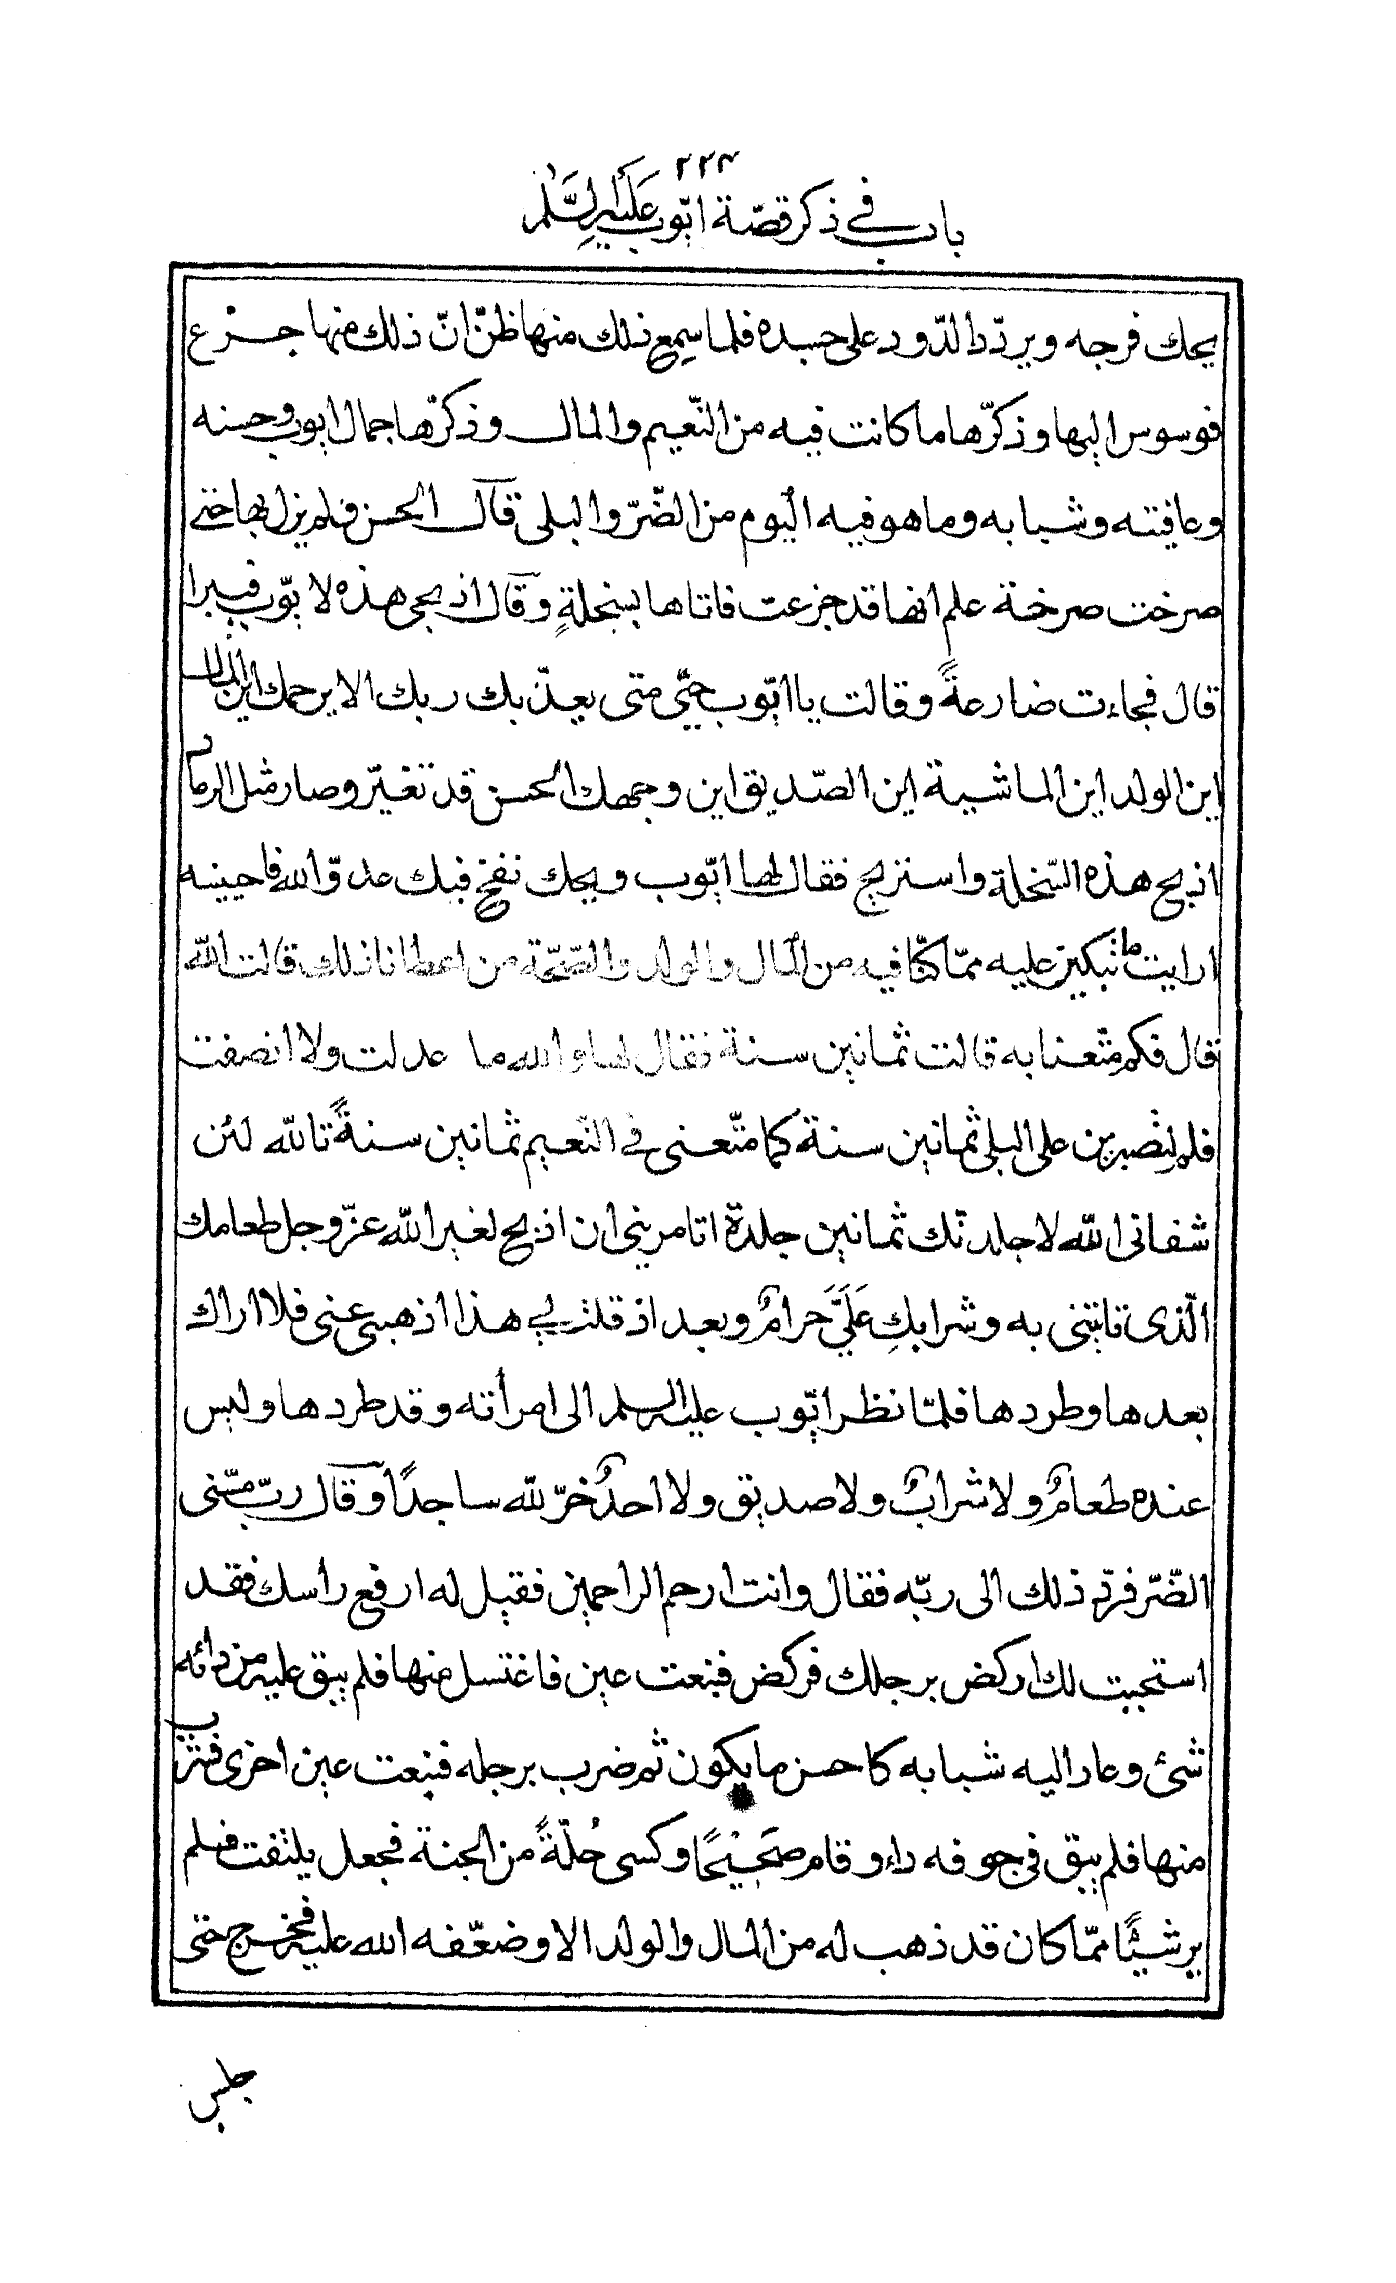 ٢٢٣
باب في ذكر قصّة ايّوب عليه السَّلم
يحك فرجه ويردّ الدّود على جسده فلما سمع ذلك منها ظنّ انّ ذلك منها جزع
فوسوس اليها وذكرّها ما كانت فيه من النّعيم والمال وذكرّها جمال ايوب وحسنه
وعافيته وشبابه وما هو فيه اليوم من الضّرّ والبلى قال الحسن فلم يزل بها حتى
صرخت صرخة علم انها قد جزعت فاتاها بسخلةٍ وقال اذبحي هذه لايّوب فيبرا
قال فجاءت ضارعةً وقالت يا ايّوب حتّى متى يعذّبك ربك الا يرحمك اين المال
اين الولد اين الماشية اين الصّديق اين وجهك الحسن قد تغيّر وصار مثل الرماد
اذبح هذه السّخلة واستريح فقال لها ايّوب ويحك نفخ فيك عدوّ الله فاجيبيه
ارايت ما تبكين عليه ممّا كنّا فيه من المال والولد والصّحّة من اعطانا ذلك قالت الله
قال فكم متّعنا به قالت ثمانين سنة فقال لها والله ما عدلت ولا انصفت
فلم لتصبرين على البلى ثمانين سنة كما متّعنى في النّعيم ثمانين سنةً تالله لئن
شفانى الله لاجلدنّك ثمانين جلدة اتامريني ان اذبح لغير الله عزّ وجل طعامك
الّذى تاتينى به وشرابكِ عَلَيَّ حرامٌ وبعد اذ قلت لي هذا اذهبى عنى فلا اراك
بعدها وطردها فلمّا نظر ايّوب عليه السلم الى امرأته وقد طردها وليس
عنده طعامٌ ولا شرابٌ ولا صديق ولا احدٌ خرّ لله ساجدًا وقال ربّ مسّنى
الضّرّ فردّ ذلك الى ربّه فقال وانت ارحم الراحمين فقيل له ارفع رأسك فقد
استجبت لك اركض برجلك فركض فنبعت عين فاغتسل منها فلم يبق عليه من دائه
شئ وعاد اليه شبابه كاحسن ما يكون ثم ضرب برجله فنبعت عين اخرى فشرب
منها فلم يبق فى جوفه داء وقام صَحيْحًا وكسى حُلّةً من الجنة فجعل يلتفت فلم
ير شيئًا ممّا كان قد ذهب له من المال والولد الا وضعّفه الله عليه فخرج حتى
جلس